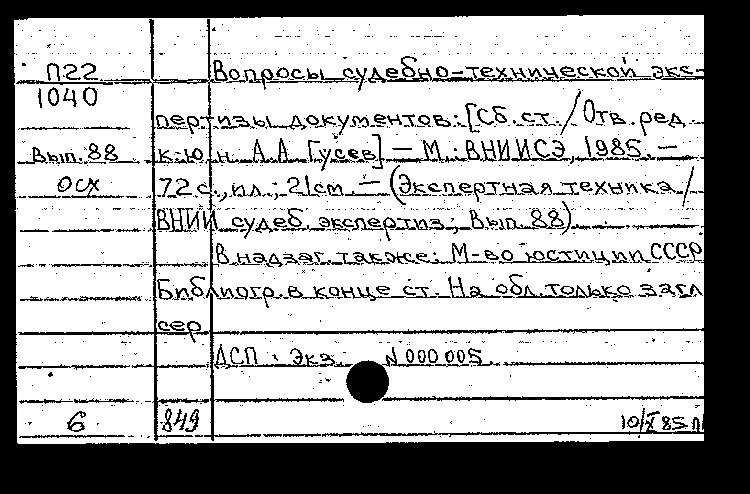 П22 Вопросы судебно-технической экс-
1040
пертизы документов: [Сб. ст. / Отв. ред.
Вып. 88 к.ю.н. А.А. Гусев] — М.: ВНИИСЭ, 1985. —
ОСХ 72 с., ил.; 21 см. — (Экспертная техника /
ВНИИ судеб. экспертиз; Вып. 88)
В надзаг. также: М-во юстиции СССР
Библиогр. в конце ст. На обл. только загл
сер.
ДСП. Экз. N 000005.
6 849 10/X 85